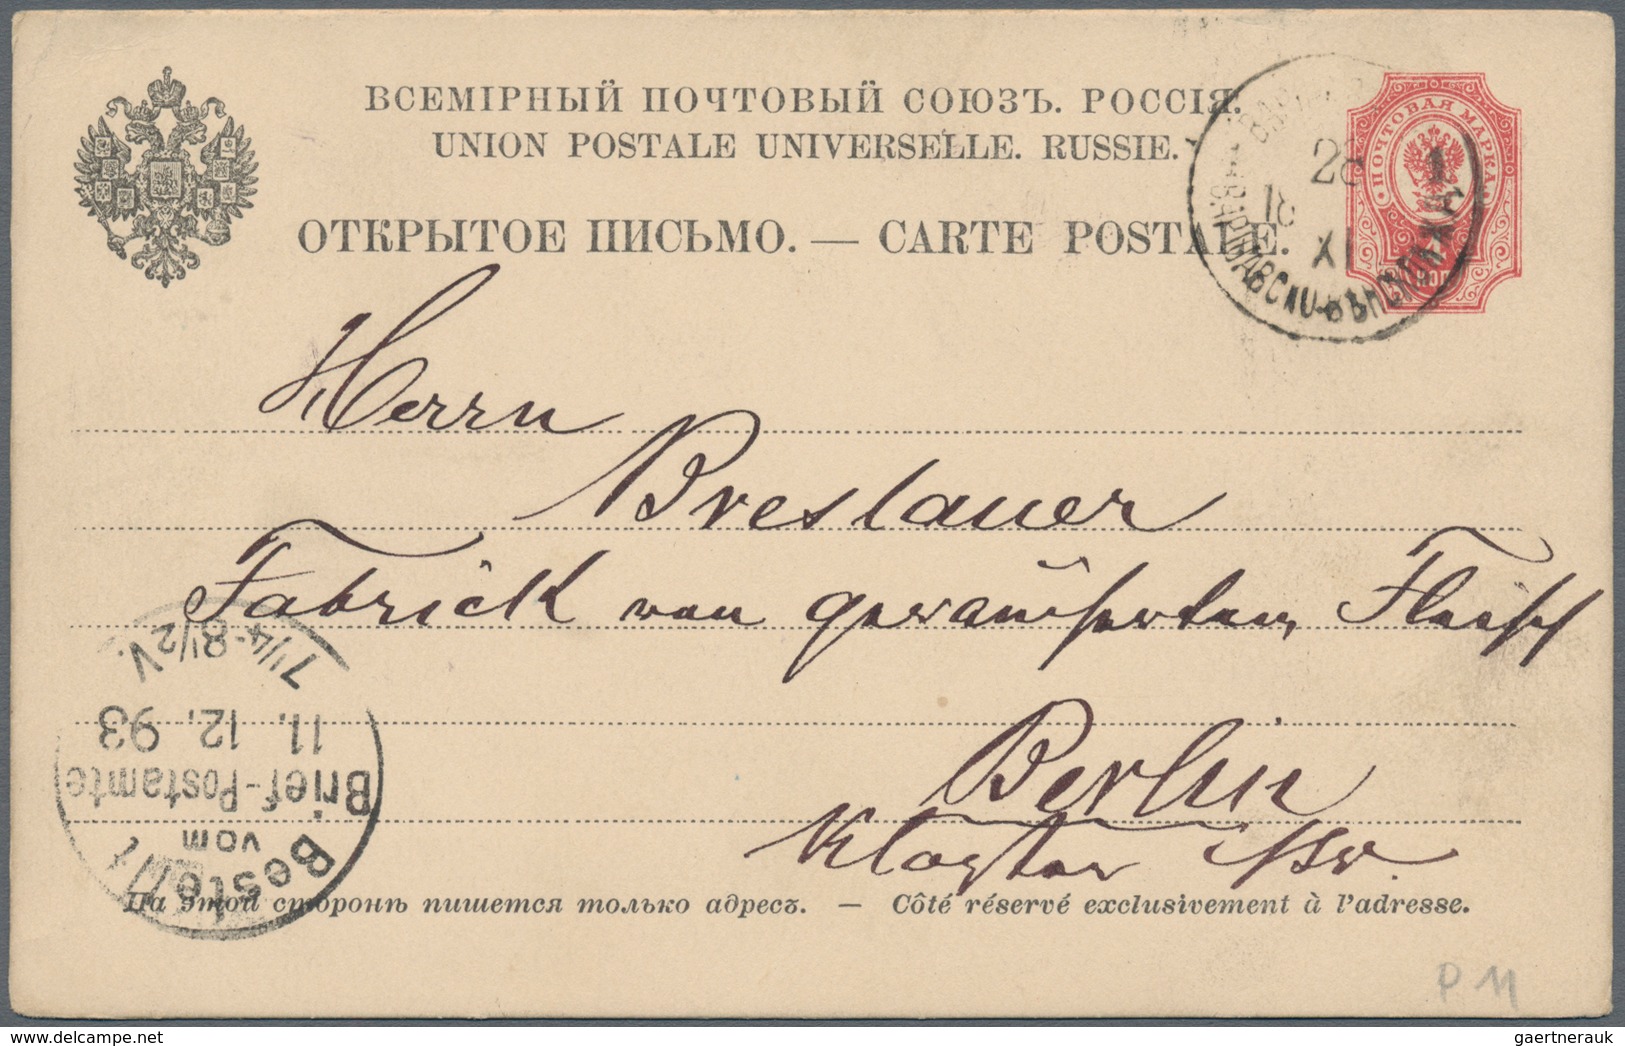 ВСЕМІРНЫЙ ПОЧТОВЫЙ СОЮЗЪ. РОССІЯ.
UNION POSTALE UNIVERSELLE. RUSSIE.
ОТКРЫТОЕ ПИСЬМО. — CARTE POSTALE.
ПОЧТОВАЯ МАРКА
1
XI
Herrn
Breslauer
Fabrick von geräucherten Fleisch
Berlin
Kloster Str.
Bestellt
vom
Brief-Postamte
11. 12. 93
7 1/4-8 1/2 V.
На этой сторонѣ пишется только адресъ. — Côté réservé exclusivement à l'adresse.
P 11
gaertnerauk